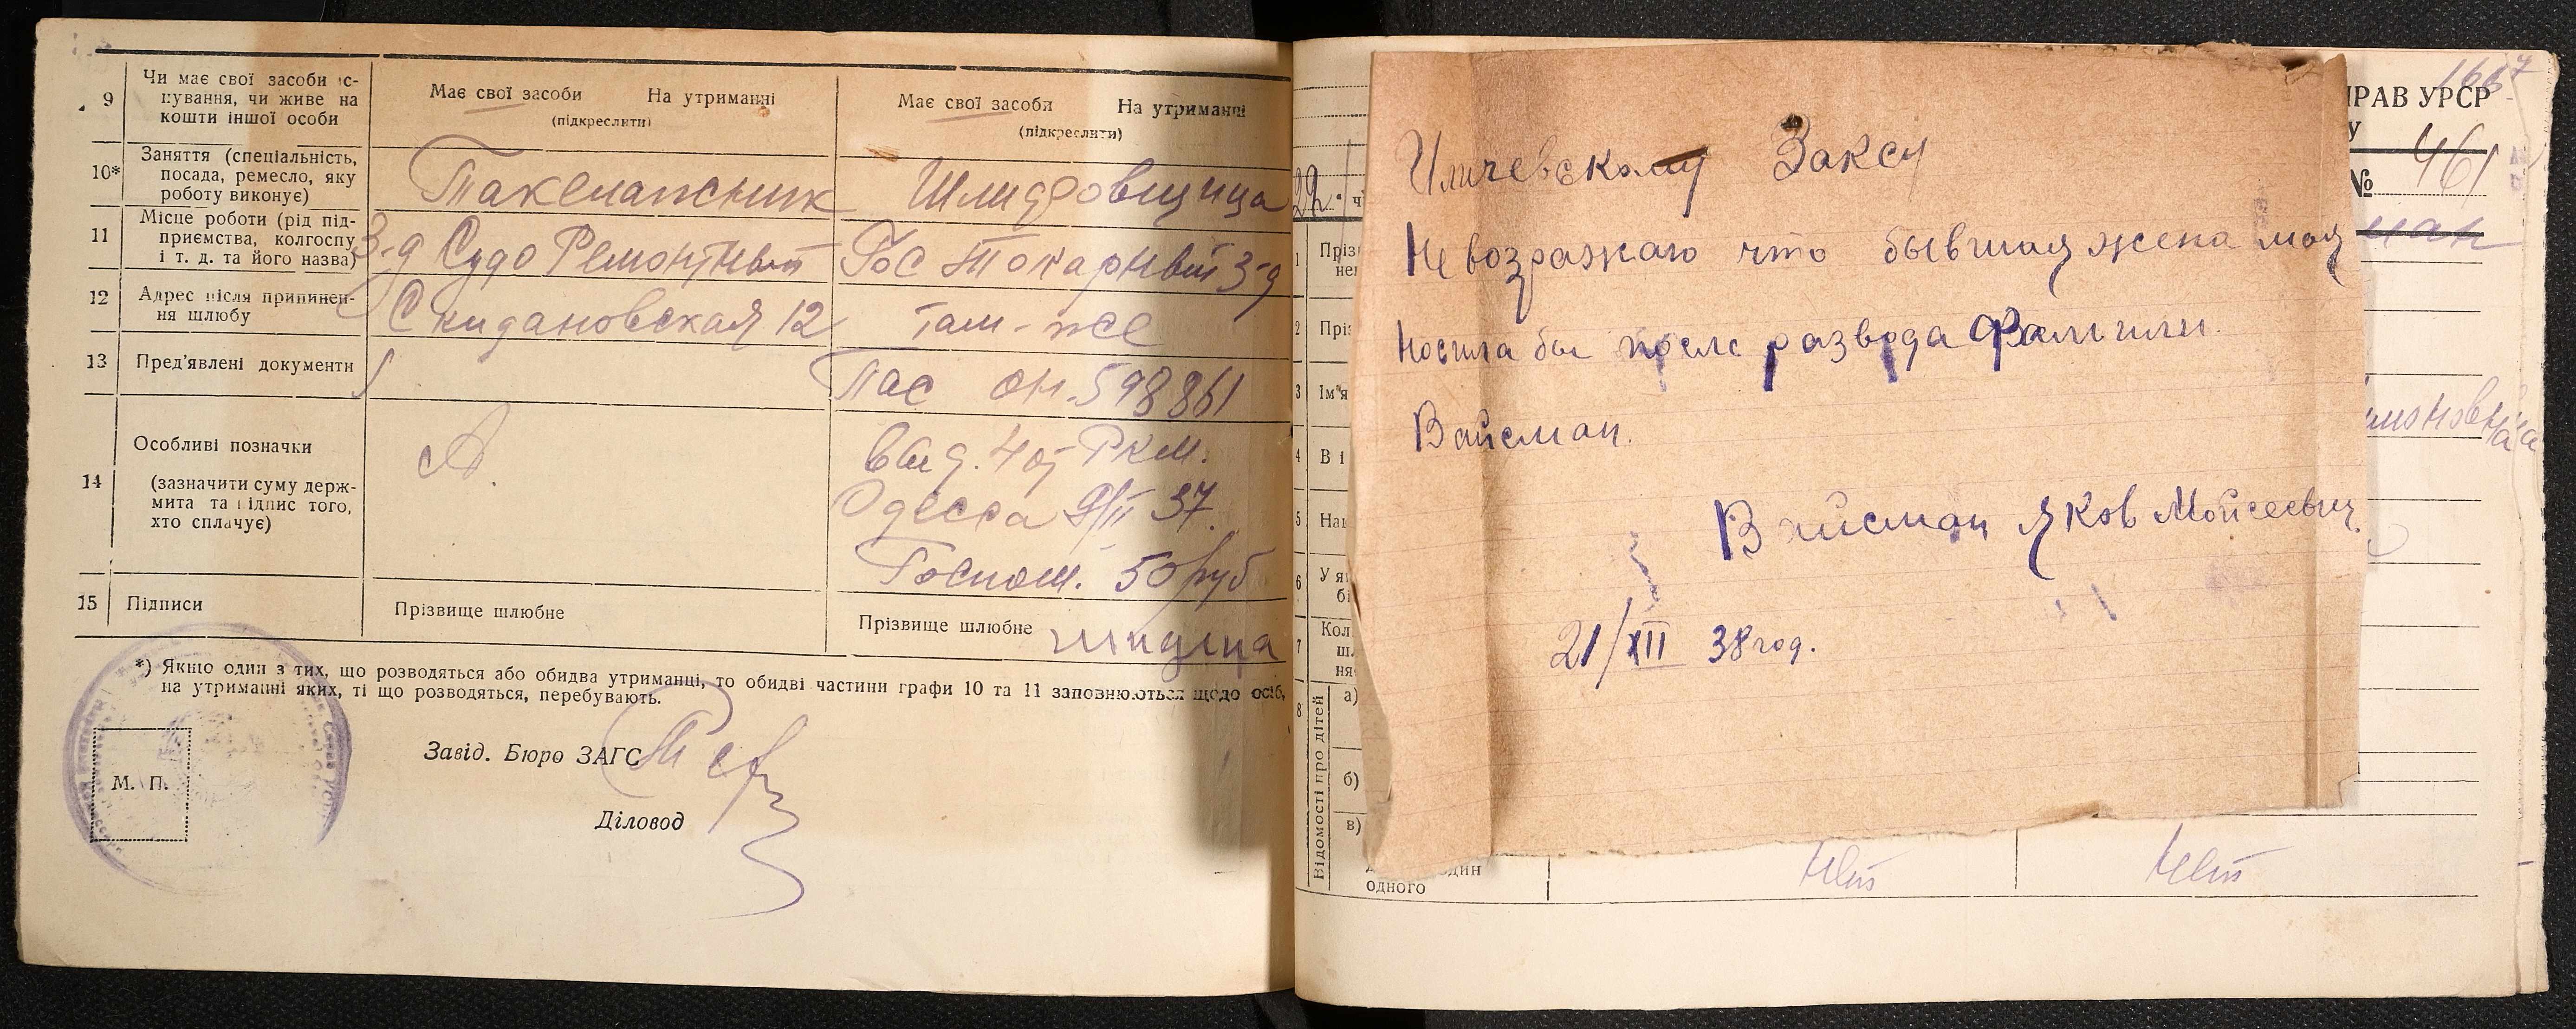 9
Чи має свої засоби іс-
нування, чи живе на
кошти іншої особи
Має свої засоби На утриманні
(підкреслити)
Має свої засоби На утриманні
(підкреслити)
10*
Заняття (спеціальність,
посада, ремесло, яку
роботу виконує)
Такелажник
Шлифовщица
11
Місце роботи (рід під-
приємства, колгоспу
і т. д. та його назва)
З-д Судо Ремонтный
Гос Токарный З-д
12
Адрес після припинен-
ня шлюбу
Скидановская 12
там-же
13
Пред'явлені документи
Пас ОН. 598861
14
Особливі позначки
(зазначити суму держ-
мита та підпис того,
хто сплачує)
выд. 4 от Ркм.
Одесса 9/II 37
Госпош. 50 руб
15
Підписи
Прізвище шлюбне
Прізвище шлюбне
*) Якщо один з тих, що розводяться або обидва утриманці, то обидві частини графи 10 та 11 заповнюються щодо осіб,
на утриманні яких, ті що розводяться, перебувають.
М. П.
Завід. Бюро ЗАГС
Діловод
166
ПРАВ УРСР
У
№ 461
22 " ч
ман
1
Пріз
2
3
Ім'я
4
В і
5
Нац
6
У як
7
Кол
шл
ня
8
Відомості про дітей
а)
б)
в)
один
одного
Нет
Нет
Ильичевскому Заксу
Не возражаю что бывшая жена моя
носила бы после развода Фамилии
Вайсман.
Вайсман Яков Мойсеевич.
21/XII 38 год.